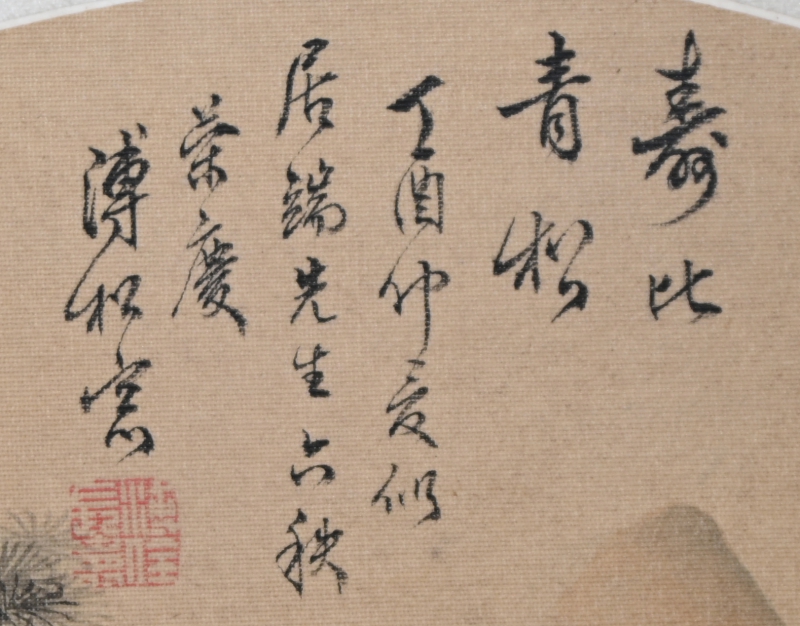 壽比
青松
丁酉仲夏似
居端先生六秩
榮慶
溥松窓